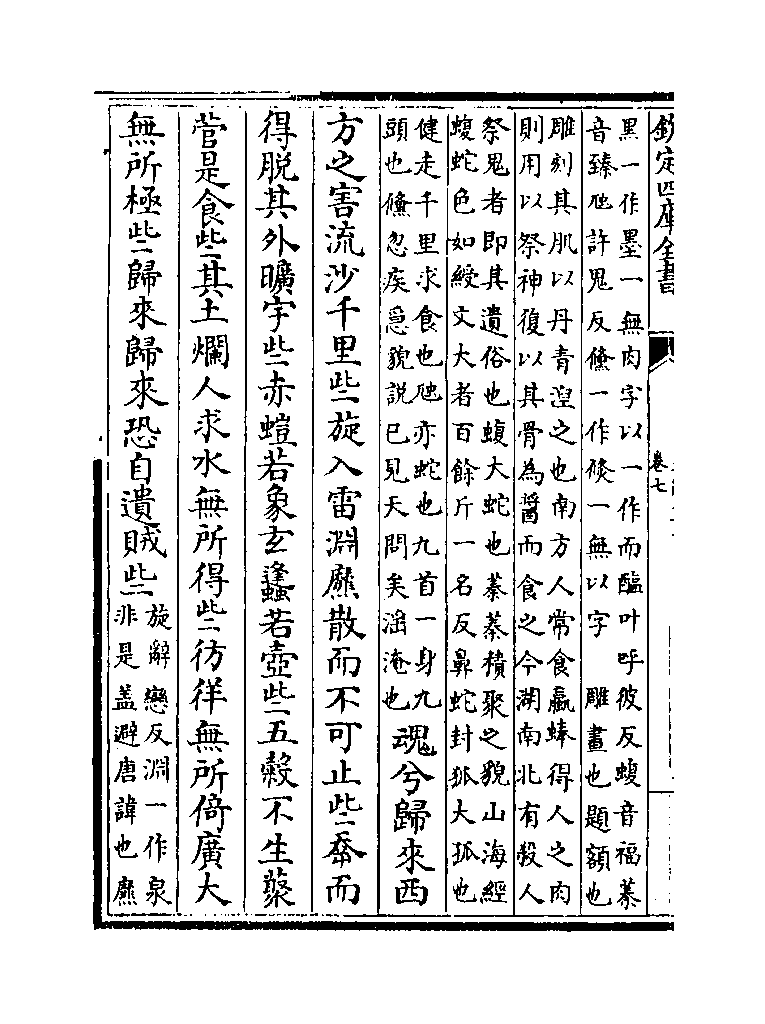 欽定四庫全書
卷七
黑一作墨一無肉字以一作而醢叶呼彼反蝮音福蓁
音臻虺許鬼反儵一作倐一無以字　雕畫也題額也
雕刻其肌以丹青湼之也南方人常食蠃蜯得人之肉
則用以祭神復以其骨為醤而食之今湖南北有殺人
祭鬼者即其遺俗也蝮大蛇也蓁蓁積聚之貌山海經
蝮蛇色如綬文大者百餘斤一名反鼻蛇封狐大狐也
健走千里求食也虺亦蛇也九首一身九
頭也儵忽疾急貌説已見天問矣淫淹也
魂兮歸來西
方之害流沙千里些旋入雷淵爢散而不可止些㚔而
得脱其外曠宇些赤螘若象玄蠭若壺些五榖不生藂
菅是食些其土爛人求水無所得些彷徉無所倚廣大
無所極些歸來歸來恐自遺賊些
旋辭戀反淵一作泉
非是盖避唐諱也爢